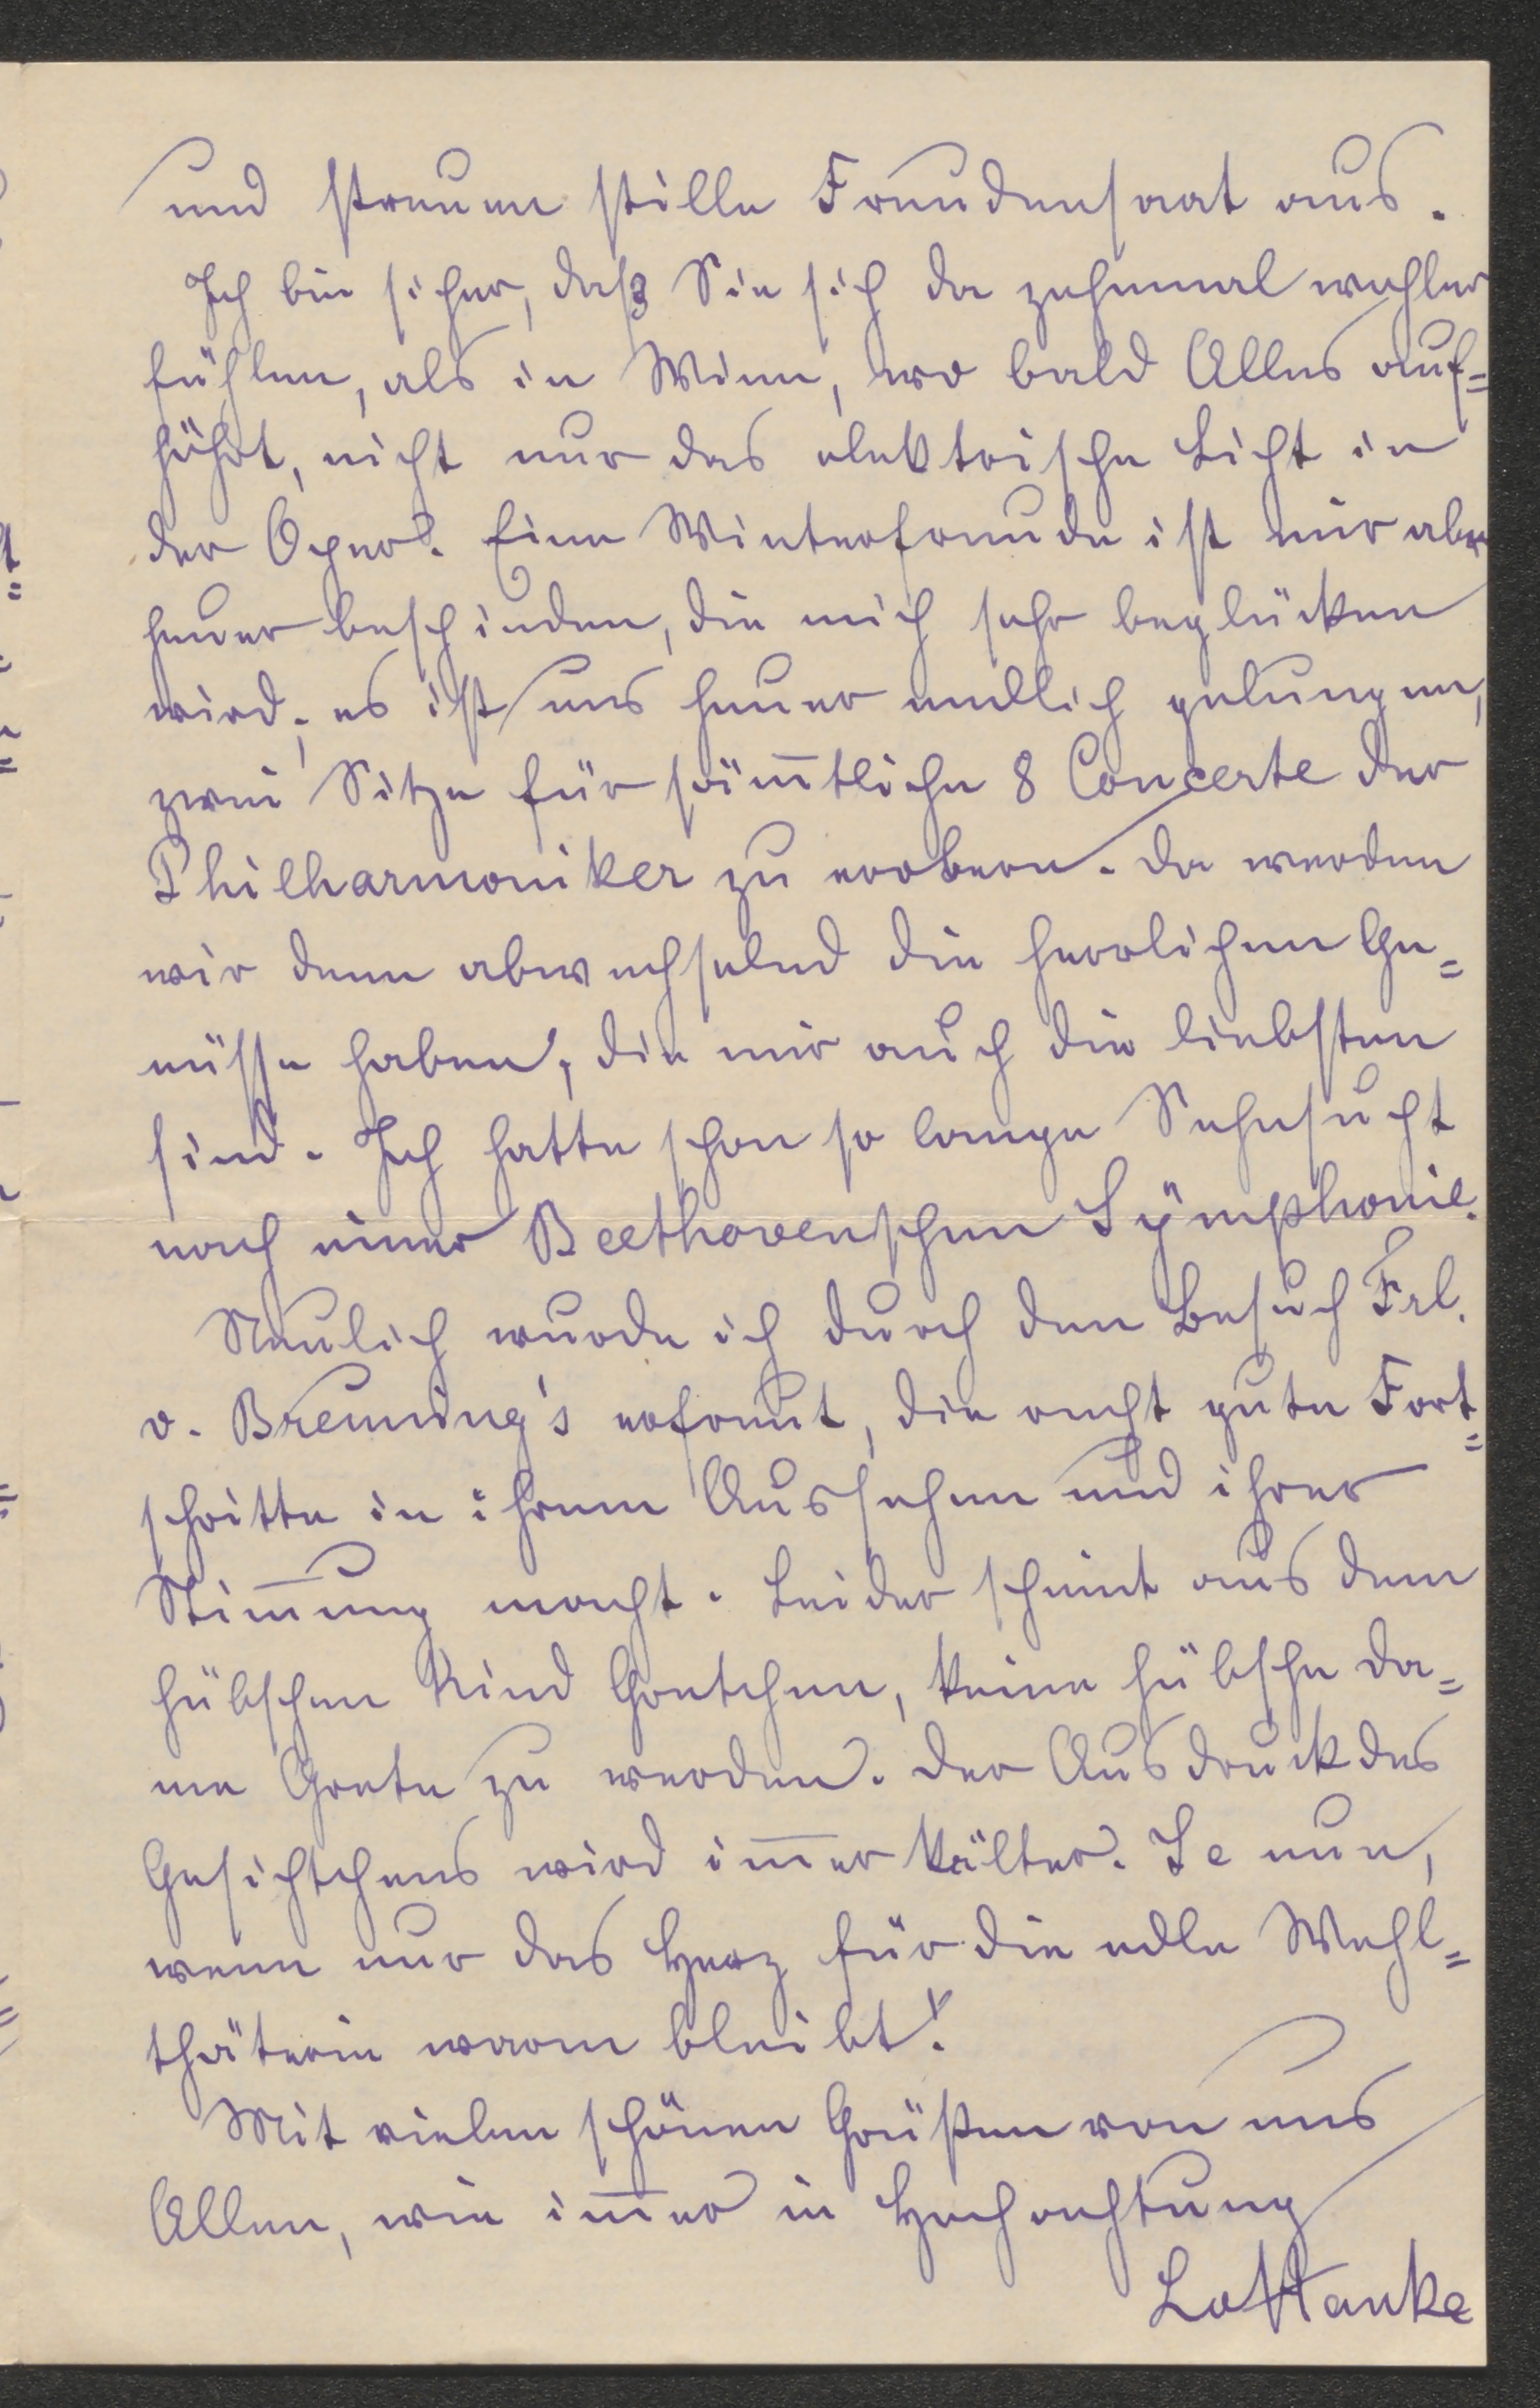 und streuen stille Freudensaat aus.
Ich bin sicher, daß Sie sich da zehnmal wohler
fühlen, als in Wien, wo bald Alles auf=
höhrt, nicht nur das elektrische Licht in
der Oper. Eine Winterfreude ist mir aber
heuer beschieden, die mich sehr beglücken
wird; es ist uns heuer endlich gelungen,
zwei Sitze für säm̅tliche 8 Concerte der
Philharmoniker zu erobern. Da werden
wir denn abwechselnd die herrlichen Ge=
nüsse haben, die mir auch die liebsten
sind. Ich hatte schon so lange Sehnsucht
nach einer Beethovenschen Sÿmphonie.
Neulich wurde ich durch den Besuch Frl.
v. Breuning's erfreut, die recht gute Fort=
schritte in ihrem Aussehen und ihrer
Stim̅ung macht. Leider scheint aus dem
hübschen Kind Gretchen, keine hübsche Da=
me Grete zu werden. Der Ausdruck des
Gesichtchens wird im̅er kälter. Je nun,
wenn nur das Herz für die edle Wohl=
thäterin warm bleibt!
Mit vielen schönen Grüßen von uns
Allen, wie im̅er in Hochachtung